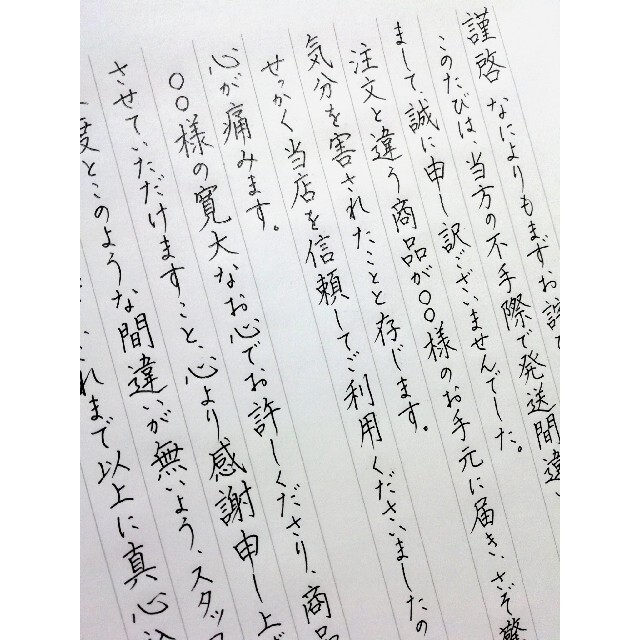 謹啓 なによりもまずお詫
このたびは、当方の不手際で発送間違い
まして、誠に申し訳ございませんでした。
注文と違う商品が○○様のお手元に届き、さぞ驚
気分を害されたことと存じます。
せっかく当店を信頼してご利用くださいましたの
心が痛みます。
○○様の寛大なお心でお許しくださり、商品
させていただけますこと、心より感謝申し上げ
度とこのような間違いが無いよう、スタッフ
れまで以上に真心込